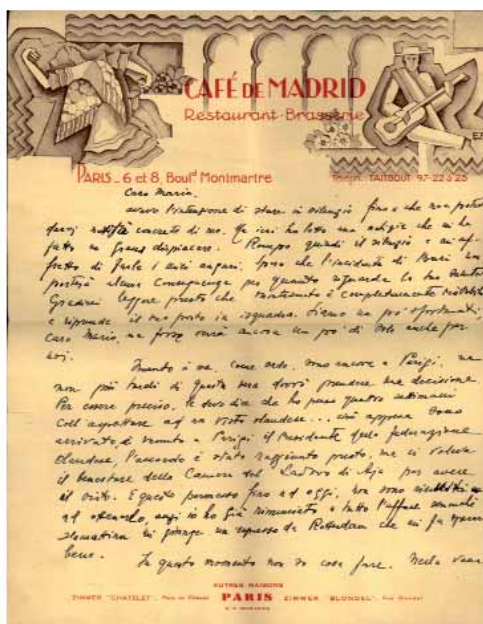 CAFÉ DE MADRID
Restaurant-Brasserie
PARIS_6 et 8, Boul.d Montmartre
Téléph. TAITBOUT 97-22 à 25
Caro Mario,
avevo l'intenzione di stare in silenzio fino a che non potevo
darti notizie concrete di me. Ieri ho letto una notizia che mi ha
fatto un grande dispiacere. Rompo quindi il silenzio e mi af-
fretto di farle i miei auguri. Spero che l'incidente di Bari non
porterà alcune conseguenze per quanto riguarda la tua salute
Gradirei leggere presto che completamente ristabilito
e riprende il tuo posto in squadra. Siamo un po' sfortunati,
caro Mario, ma forse verrà ancora un po' di sole anche per
noi.
Quanto a me, come vedi, sono ancora a Parigi, ma
non più tardi di questa sera dovrò prendere una decisione
Per essere preciso, ti devo dire che ho perso quattro settimane
coll'aspettare ad un visto olandese... appena sono
arrivato, è venuto a Parigi, il Presidente della federazione
Olandese, l'accordo è stato raggiunto presto, ma ci voleva
il benestare della Camera del Lavoro di Aja per avere
il visto. E questo permesso fino ad oggi, non sono
ad ottenerlo, anzi io ho già rinunciato a tutto l'affare
stamattina mi giunge un espresso da Rotterdam che mi fa
bene.
In questo momento non so cosa fare. Nella
AUTRES MAISONS
ZIMMER "CHATELET", Place du Chatelet PARIS ZIMMER "BLONDEL", Rue Blondel